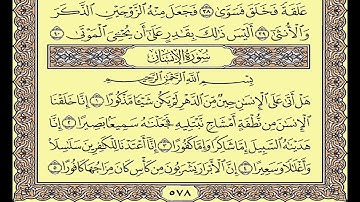 عَلَقَةً فَخَلَقَ فَسَوَّىٰ ٣٨ فَجَعَلَ مِنْهُ الزَّوْجَيْنِ الذَّكَرَ
وَالْأُنثَىٰ ٣٩ أَلَيْسَ ذَٰلِكَ بِقَادِرٍ عَلَىٰ أَن يُحْيِيَ الْمَوْتَىٰ ٤٠
سُورَةُ الْإِنسَانِ
بِسْمِ اللَّهِ الرَّحْمَٰنِ الرَّحِيمِ
هَلْ أَتَىٰ عَلَى الْإِنسَانِ حِينٌ مِّنَ الدَّهْرِ لَمْ يَكُن شَيْئًا مَّذْكُورًا ١ إِنَّا خَلَقْنَا
الْإِنسَانَ مِن نُّطْفَةٍ أَمْشَاجٍ نَّبْتَلِيهِ فَجَعَلْنَاهُ سَمِيعًا بَصِيرًا ٢ إِنَّا
هَدَيْنَاهُ السَّبِيلَ إِمَّا شَاكِرًا وَإِمَّا كَفُورًا ٣ إِنَّا أَعْتَدْنَا لِلْكَافِرِينَ سَلَاسِلَا
وَأَغْلَالًا وَسَعِيرًا ٤ إِنَّ الْأَبْرَارَ يَشْرَبُونَ مِن كَأْسٍ كَانَ مِزَاجُهَا كَافُورًا ٥
٥٧٨